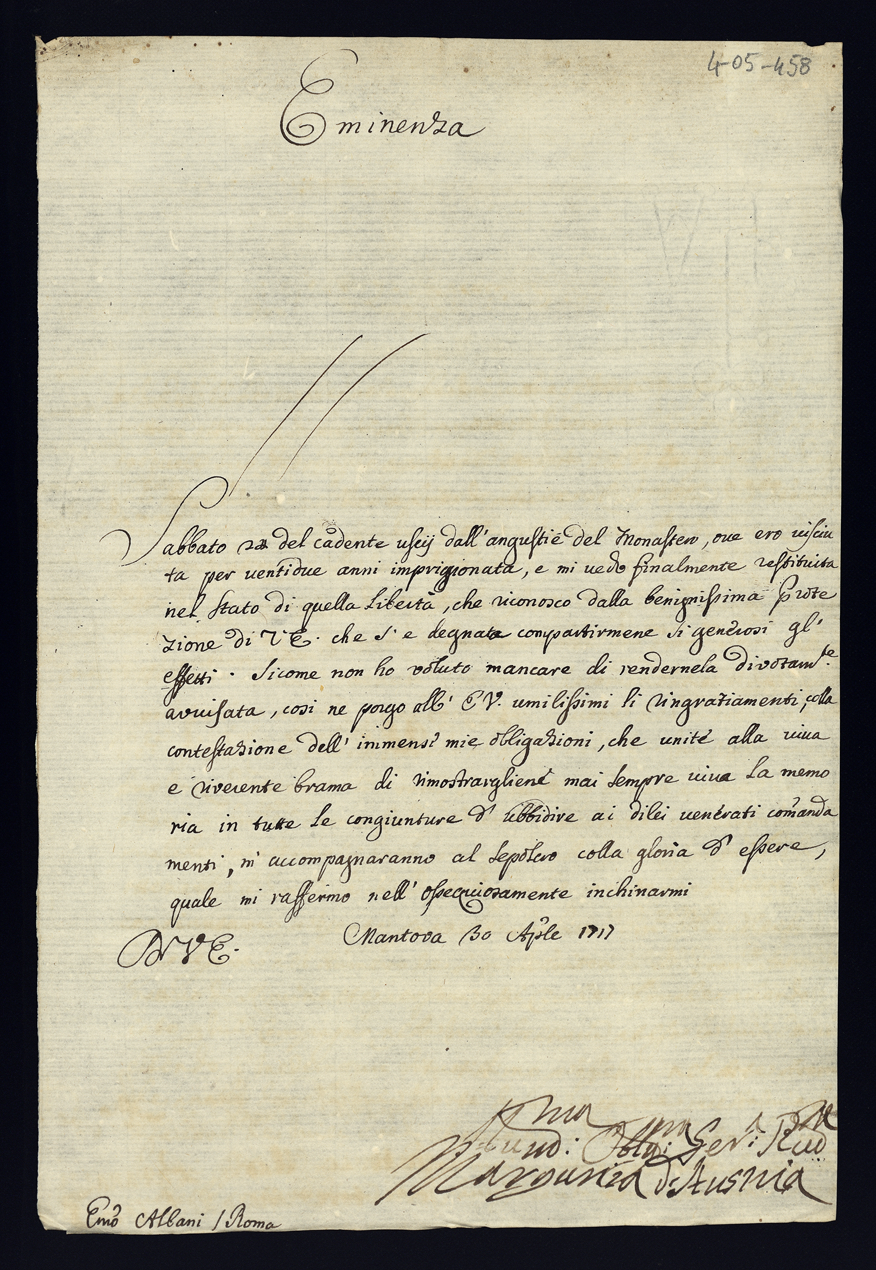 4-05-458
Eminenza
Sabbato 24 del cadente uscij dall'angustie del Monastero, oue ero uisciu
ta per uentidue anni imprigionata, e mi uedo finalmente restituita
nel Stato di quella Libertà, che riconosco dalla benignissima Prote
zione di V E. che s'e degnata compartirmene si generosi gl'
effetti. Sicome non ho voluto mancare di rendernela divotamte.
avvisata, cosi ne porgo all' E V. umilissimi li ringratiamenti, colla
contestazione dell' immensi mie obligazioni, che unite alla uiua
e riverente brama di rimostrargliene mai sempre uiua la memo
ria in tutte le congiunture d' ubbidire ai dilei uenerati comanda
menti, m' accompagnaranno al sepolcro colla gloria d' essere,
quale mi raffermo nell' ossequiosamente inchinarmi
D V E.
Mantova 30 Aple 1717
Oblig: Ser.
Margarita d'Austria
Emo Albani / Roma